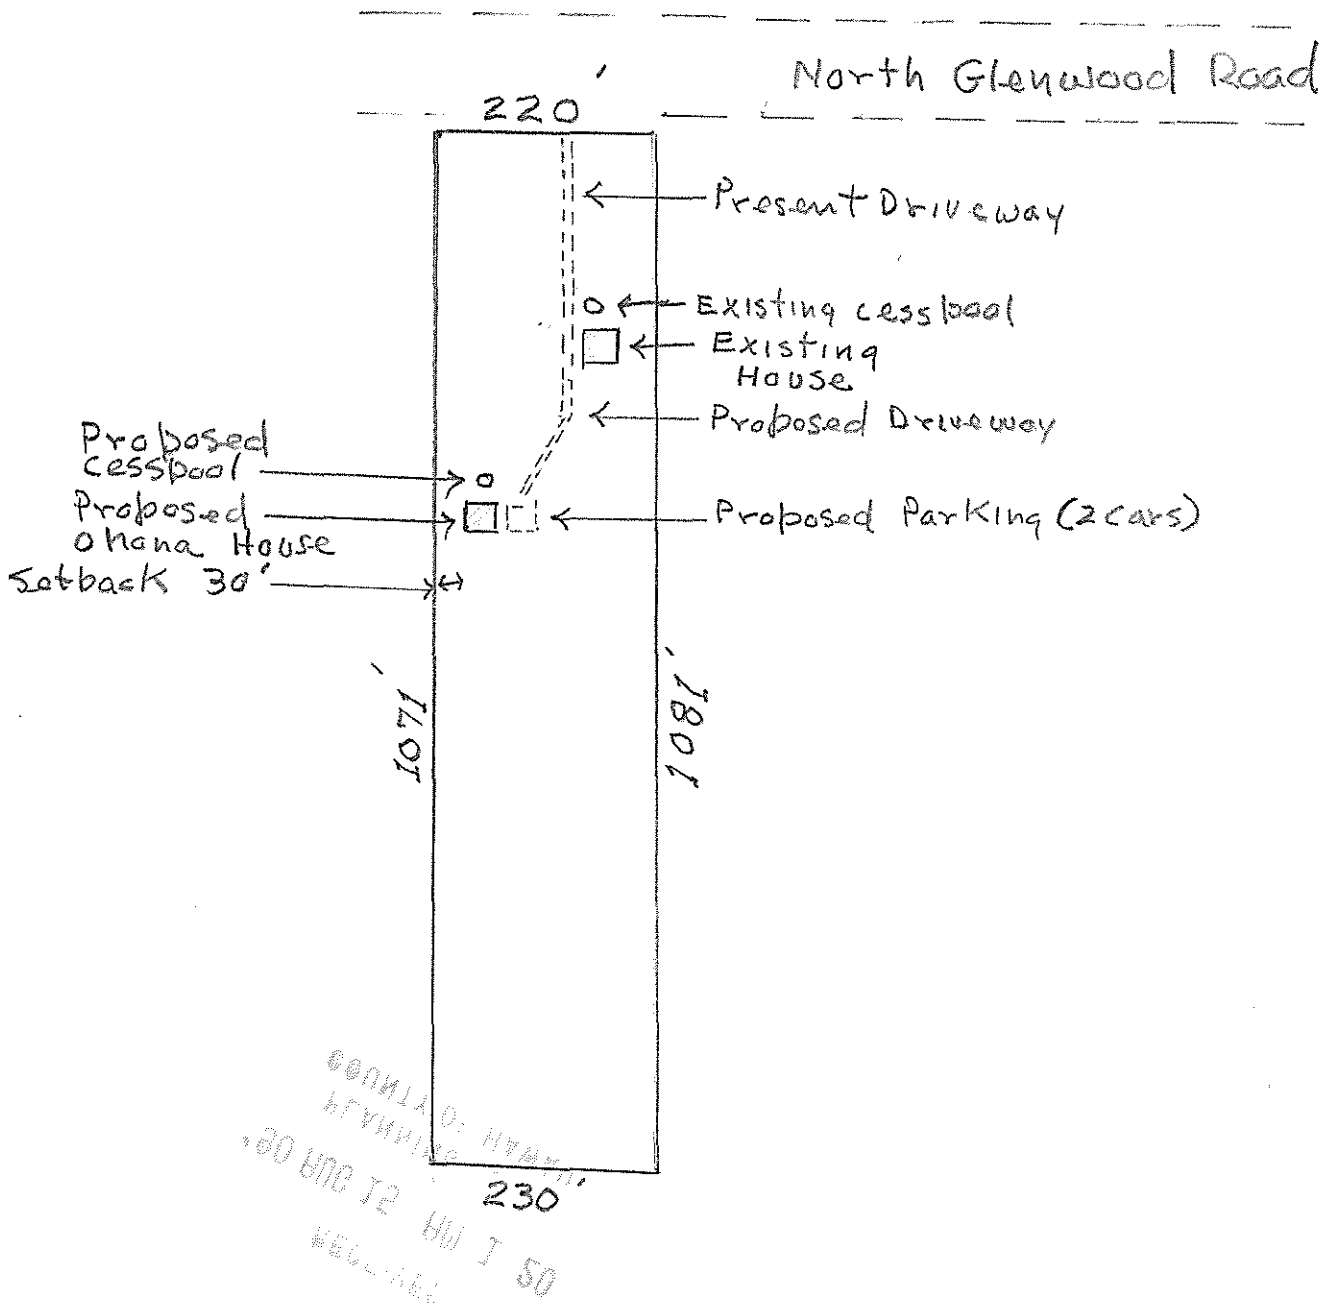 North Glenwood Road
220'
Present Driveway
Existing cesspool
Existing
House
Proposed Driveway
Proposed
cesspool
Proposed
ohana House
Proposed Parking (2 cars)
Setback 30'
1071'
1081'
230'
COUNTY OF HAWAII
PLANNING
'90 AUG 15 AM